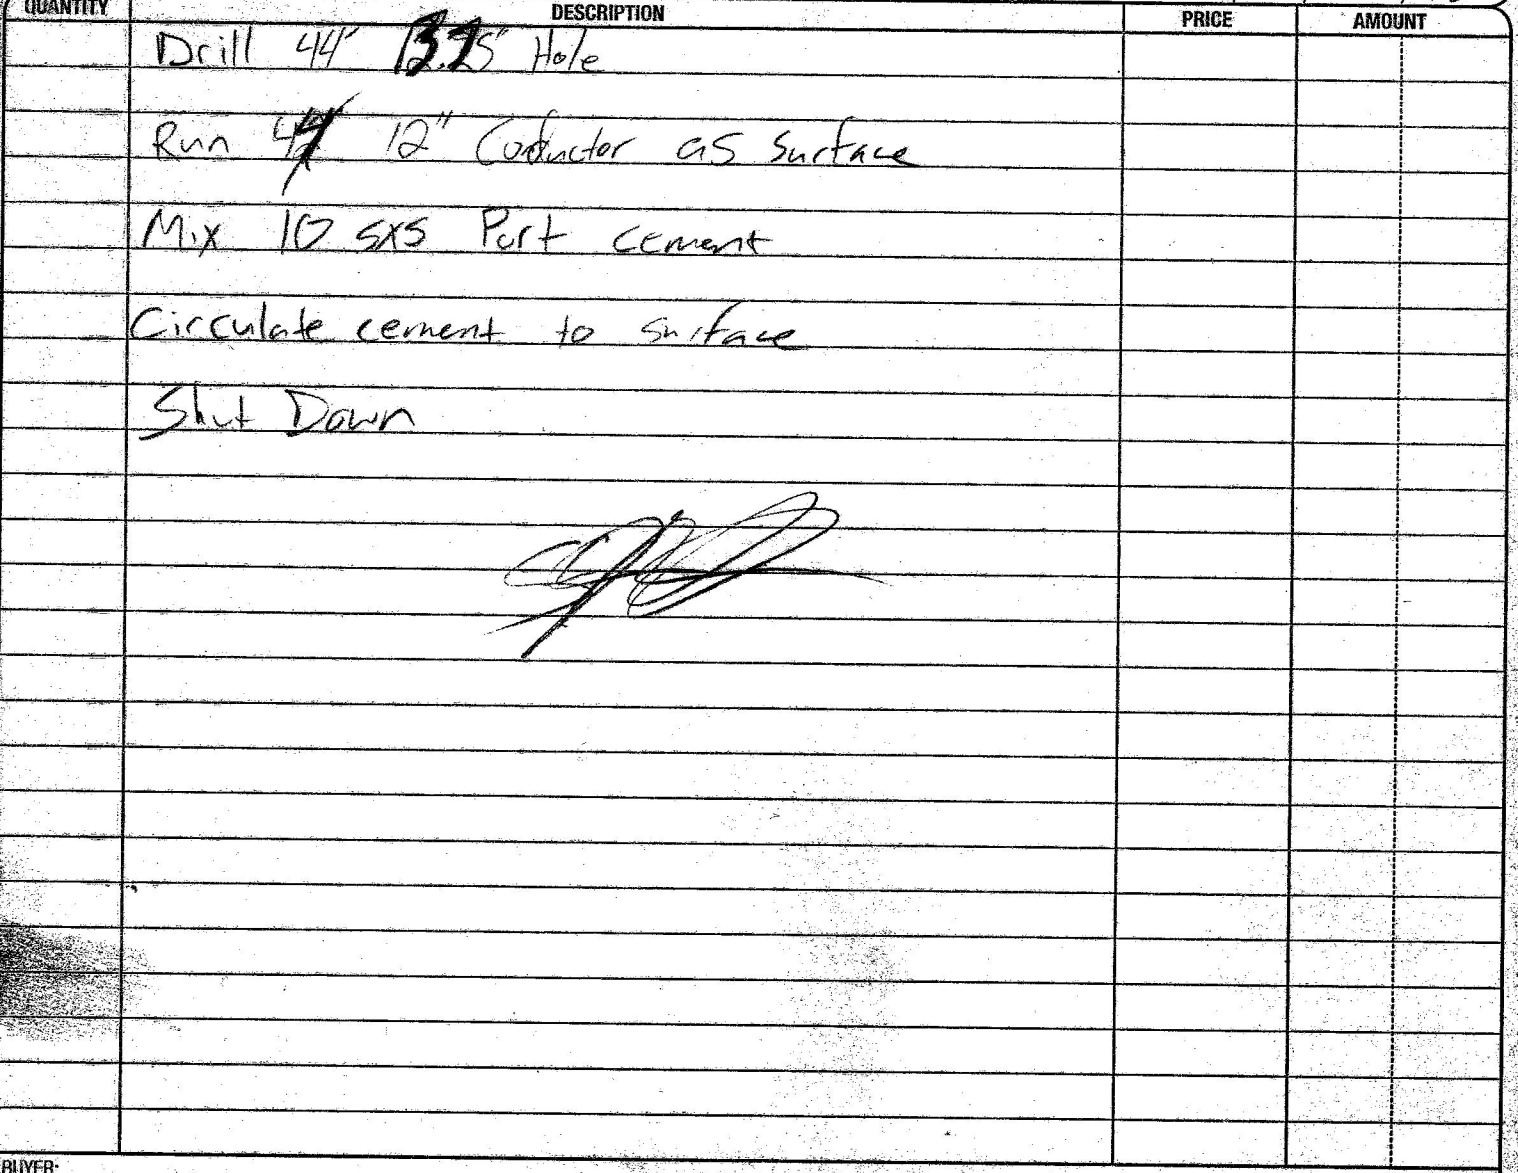 QUANTITY DESCRIPTION PRICE AMOUNT
Drill 44' Hole
Run 12" Coductor as surface
Mix 10 sxs Port cement
Circulate cement to surface
Shut Down
BUYER: